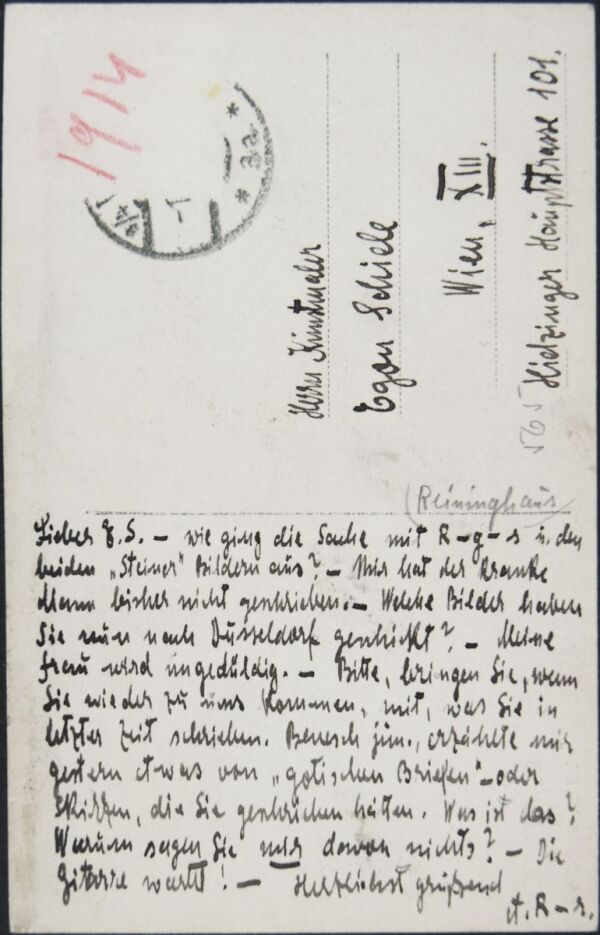 1914
Herrn Kunstmaler
Egon Schiele
Wien, XIII.
Hietzinger Hauptstrasse 101.
565
(Reininghaus)
Lieber E.S. – wie ging die Sache mit R-g-s u. den
beiden „Steiner" Bildern aus? – Mir hat der kranke
Mann bisher nicht geschrieben. – Welche Bilder haben
Sie nun nach Düsseldorf geschickt? – Meine
Frau wird ungeduldig. – Bitte, bringen Sie, wenn
Sie wieder zu uns kommen, mit, was Sie in
letzter Zeit schrieben. Benesch jun., erzählte mir
gestern etwas von „gotischen Briefen" – oder
Skizzen, die Sie geschrieben hätten. Was ist das?
Warum sagen Sie mir davon nichts? – Die
Gitarre wartet! – Herzliebst grüßend
A. R-r.